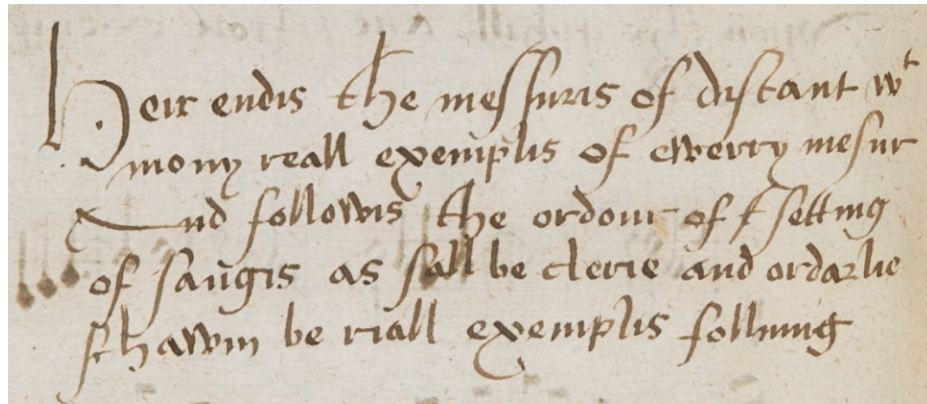 Heir endis the messuris of discant wt
mony reall exemplis of ewerry mesur
And followis the ordour of setting
of sangis as sall be clerie and ordarlie
schawin be riall exemplis folluing